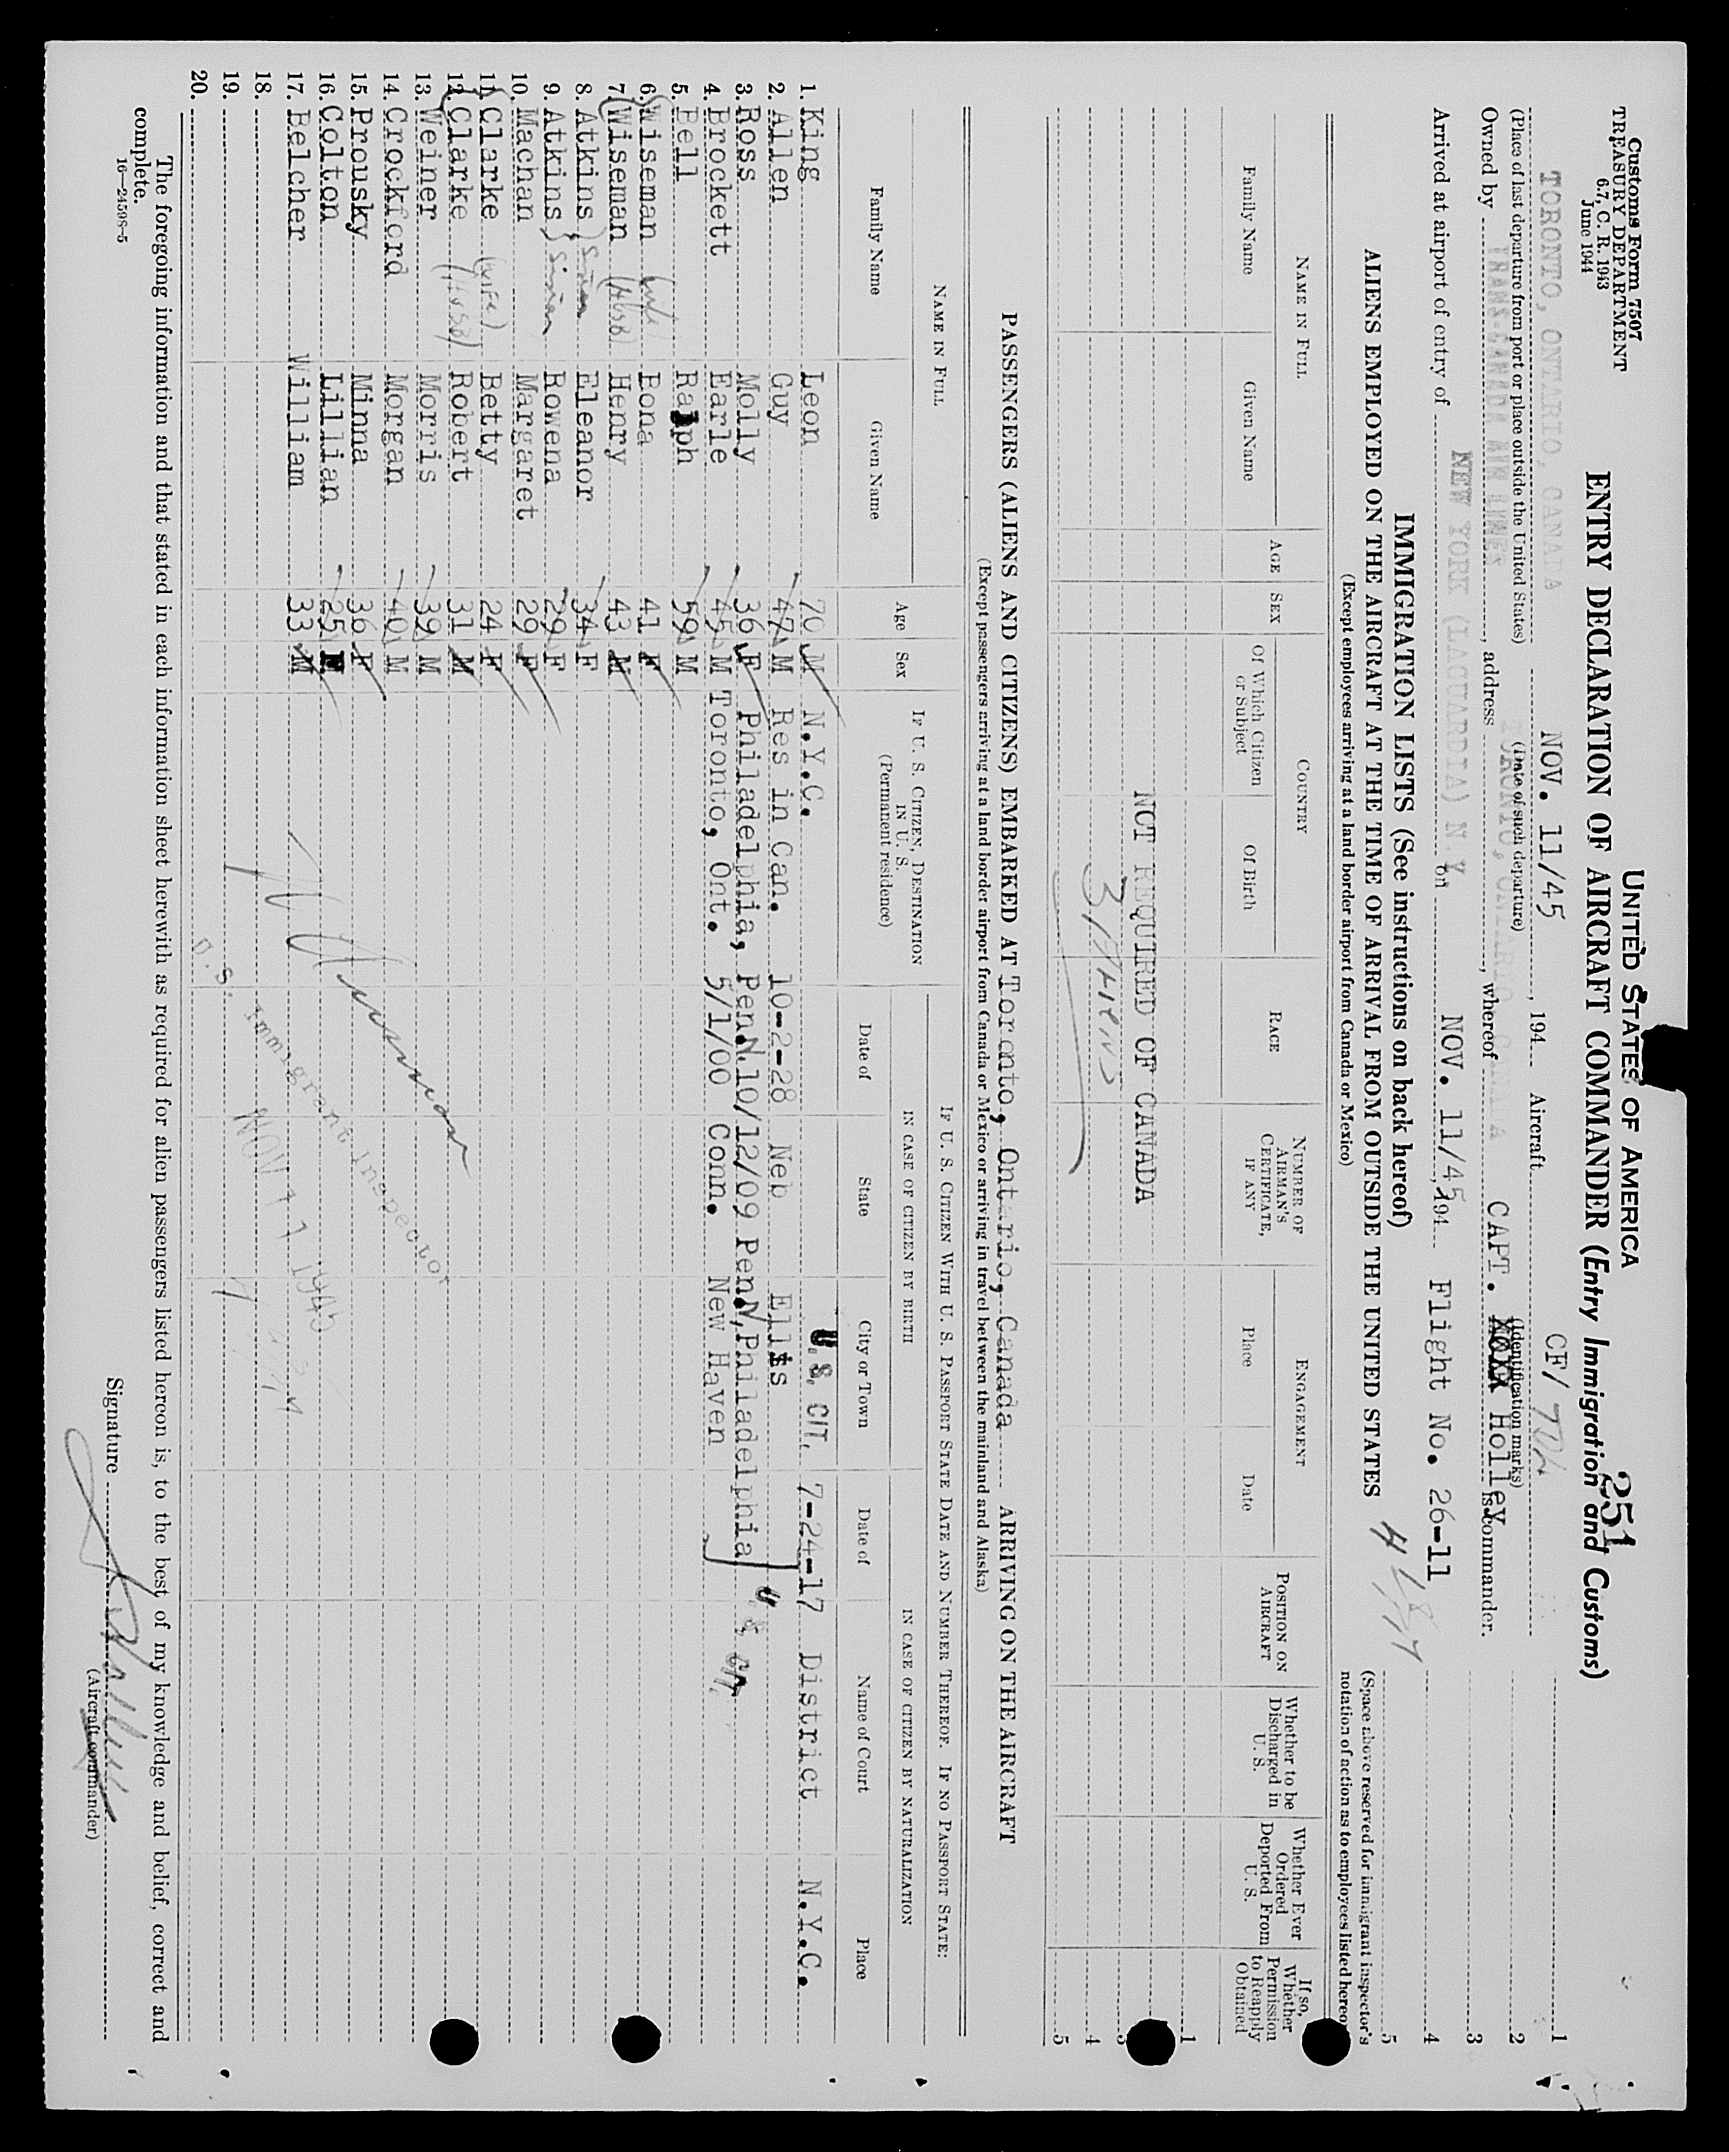 Customs Form 7507
TREASURY DEPARTMENT
6.7, C. R. 1943
June 1944
UNITED STATES OF AMERICA
251
ENTRY DECLARATION OF AIRCRAFT COMMANDER (Entry Immigration and Customs)
TORONTO, ONTARIO, CANADA NOV. 11/45, 194 Aircraft CF/
(Place of last departure from port or place outside the United States) (Date of such departure) (Identification marks)
Owned by TRANS-CANADA AIR LINES, address TORONTO, ONTARIO CANADA, whereof CAPT. Holley is commander.
Arrived at airport of entry of NEW YORK (LAGUARDIA) N.Y. on NOV. 11/45, 194 Flight No. 26-11
IMMIGRATION LISTS (See instructions on back hereof)
ALIENS EMPLOYED ON THE AIRCRAFT AT THE TIME OF ARRIVAL FROM OUTSIDE THE UNITED STATES
(Except employees arriving at a land border airport from Canada or Mexico)
1
2
3
4
5
(Space above reserved for immigrant inspector's notation of action as to employees listed hereon)
NAME IN FULL
Family Name
Given Name
AGE
SEX
COUNTRY
Of Which Citizen or Subject
Of Birth
RACE
NUMBER OF AIRMAN'S CERTIFICATE, IF ANY
ENGAGEMENT
Place
Date
POSITION ON AIRCRAFT
Whether to be Discharged in U. S.
Whether Ever Ordered Deported From U. S.
If so, Whether Permission to Reapply Obtained
1
NOT REQUIRED OF CANADA
3 Aliens
4
5
PASSENGERS (ALIENS AND CITIZENS) EMBARKED AT Toronto, Ontario, Canada ARRIVING ON THE AIRCRAFT
(Except passengers arriving at a land border airport from Canada or Mexico or arriving in travel between the mainland and Alaska)
NAME IN FULL
Family Name
Given Name
Age
Sex
IF U. S. CITIZEN, DESTINATION IN U. S.
(Permanent residence)
IF U. S. CITIZEN WITH U. S. PASSPORT STATE DATE AND NUMBER THEREOF. IF NO PASSPORT STATE:
IN CASE OF CITIZEN BY BIRTH
IN CASE OF CITIZEN BY NATURALIZATION
Date of
State
City or Town
Date of
Name of Court
Place
1. King Leon 70 M N.Y.C. U.S. CIT. 7-24-17 District N.Y.C.
2. Allen Guy 47 M Res in Can. 10-2-28 Neb Ellis
3. Ross Molly 36 F Philadelphia, PenN. 10/12/09 PenN, Philadelphia U.S. CIT.
4. Brockett Earle 45 M Toronto, Ont. 5/1/00 Conn. New Haven
5. Bell Ralph 59 M
6. Wiseman (wife) Bona 41 F
7. Wiseman (Husb) Henry 43 M
8. Atkins Eleanor 34 F
9. Atkins Rowena 29 F
10. Machan Margaret 29 F
11. Clarke (wife) Betty 24 F
12. Clarke (Husb) Robert 31 M
13. Weiner Morris 39 M
14. Crockford Morgan 40 M
15. Prousky Minna 36 F
16. Colton Lillian 25 F
17. Belcher William 33 M
18.
19.
20.
U.S. Immigrant Inspector
NOV 11 1945
The foregoing information and that stated in each information sheet herewith as required for alien passengers listed hereon is, to the best of my knowledge and belief, correct and
complete.
16—24598-5
Signature
(Aircraft commander)